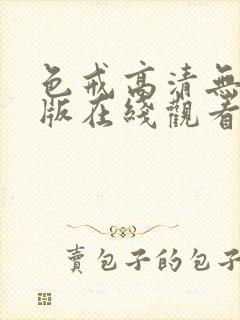 色戒高清無
版在綫觀看
賣包子的包子